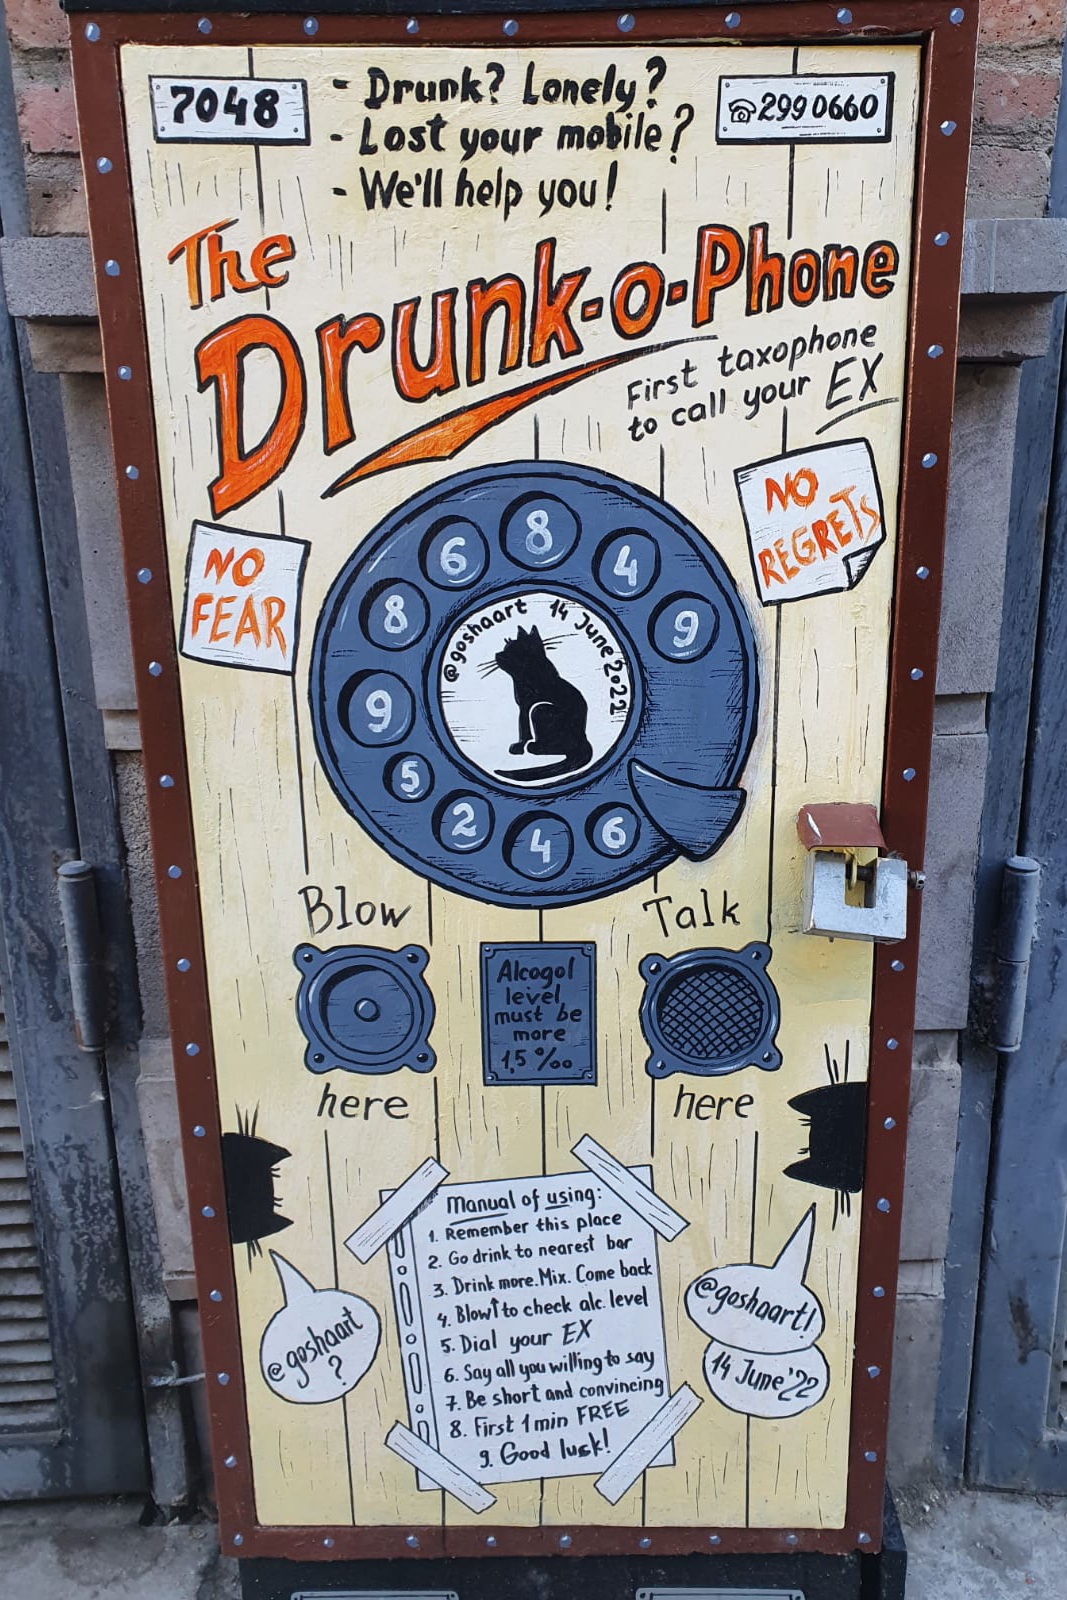 7048
- Drunk? Lonely?
- Lost your mobile?
- We'll help you!
☎2990660
The
Drunk-o-Phone
First taxophone
to call your EX
NO
FEAR
NO
REGRETS
9
4
8
6
8
9
5
2
4
6
@goshaart 14 June 2022
Blow
here
Alcogol
level
must be
more
1,5 ‰
Talk
here
Manual of using:
1. Remember this place
2. Go drink to nearest bar
3. Drink more. Mix. Come back
4. Blow↑to check alc. level
5. Dial your EX
6. Say all you willing to say
7. Be short and convincing
8. First 1 min FREE
9. Good lusk!
@goshaart
?
@goshaart!
14 June'22